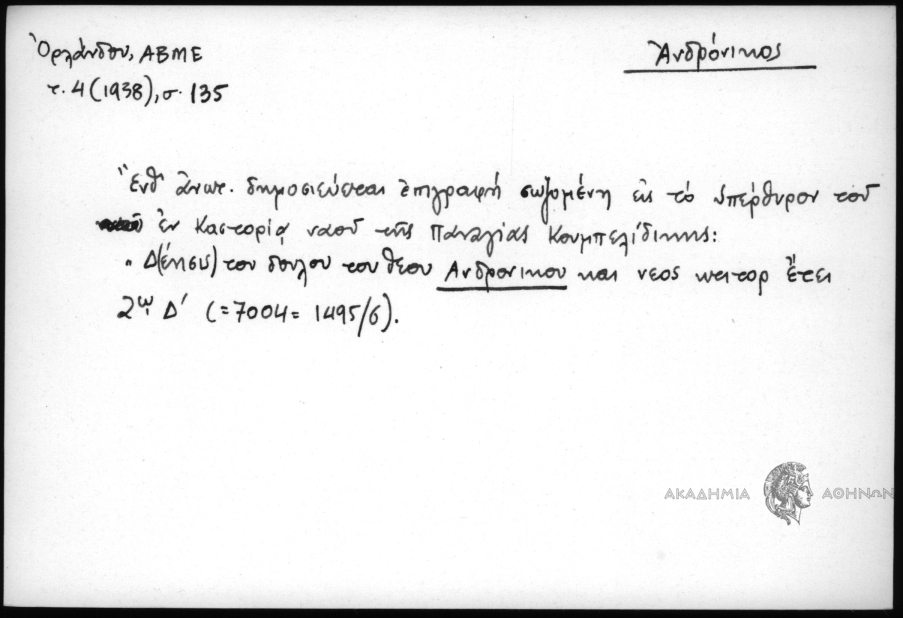 Ὀρλάνδου, ΑΒΜΕ
τ. 4 (1938), σ. 135
Ἀνδρόνικος
Ἔνθ' ἀνωτ. δημοσιεύεται ἐπιγραφή σωζομένη εἰς τό ὑπέρθυρον τοῦ
ἐν Καστορίᾳ ναοῦ τῆς Παναγίας Κουμπελίδικης:
" Δ(έησις) του δουλου του θεου Ανδρονικου και νεος κτιτορ ἔτει
Δ' (=7004= 1495/6).
ΑΚΑΔΗΜΙΑ ΑΘΗΝΩΝ